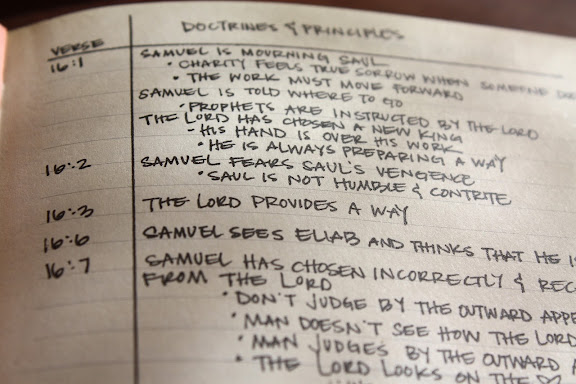 DOCTRINES & PRINCIPLES
VERSE
16:1 SAMUEL IS MOURNING SAUL
• CHARITY FEELS TRUE SORROW WHEN SOMEONE
• THE WORK MUST MOVE FORWARD
SAMUEL IS TOLD WHERE TO GO
• PROPHETS ARE INSTRUCTED BY THE LORD
THE LORD HAS CHOSEN A NEW KING
- HIS HAND IS OVER HIS WORK
• HE IS ALWAYS PREPARING A WAY
16:2 SAMUEL FEARS SAUL'S VENGENCE
• SAUL IS NOT HUMBLE & CONTRITE
16:3 THE LORD PROVIDES A WAY
16:6 SAMUEL SEES ELIAB AND THINKS THAT HE IS
16:7 SAMUEL HAS CHOSEN INCORRECTLY & REC
FROM THE LORD
• DON'T JUDGE BY THE OUTWARD APPE
• MAN DOESN'T SEE HOW THE LORD
• MAN JUDGES BY THE OUTWARD
• THE LORD LOOKS ON THE